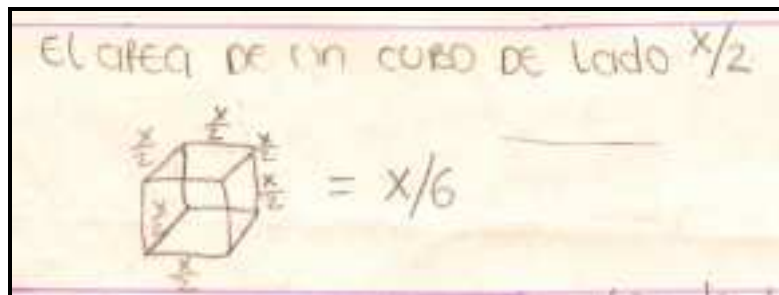 El area DE un CUBO DE lado x/2
x/2
x/2 x/2
x/2 = x/6
x/2
x/2